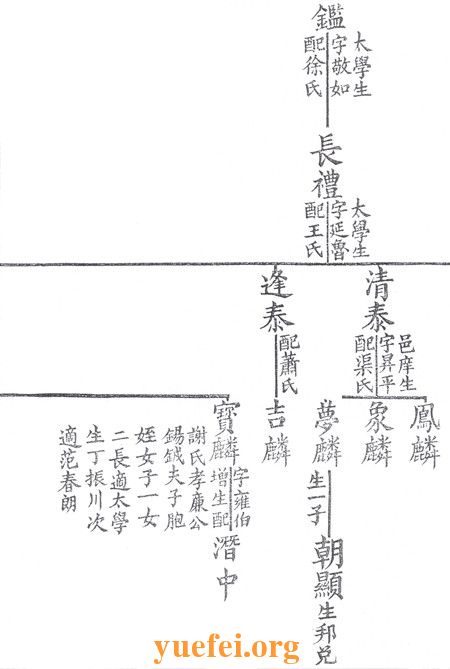 鑑
太學生
字敬如
配徐氏
長禮
太學生
字延魯
配王氏
清泰
邑庠生
字昇平
配渠氏
逢泰
配蕭氏
鳳麟
象麟
夢麟
生一子
朝顯
生邦兌
吉麟
寶麟
字雍伯
增生配
謝氏孝廉公
錫鉞夫子胞
姪女子一女
二長適太學
生丁振川次
適范春朗
潛中
yuefei.org